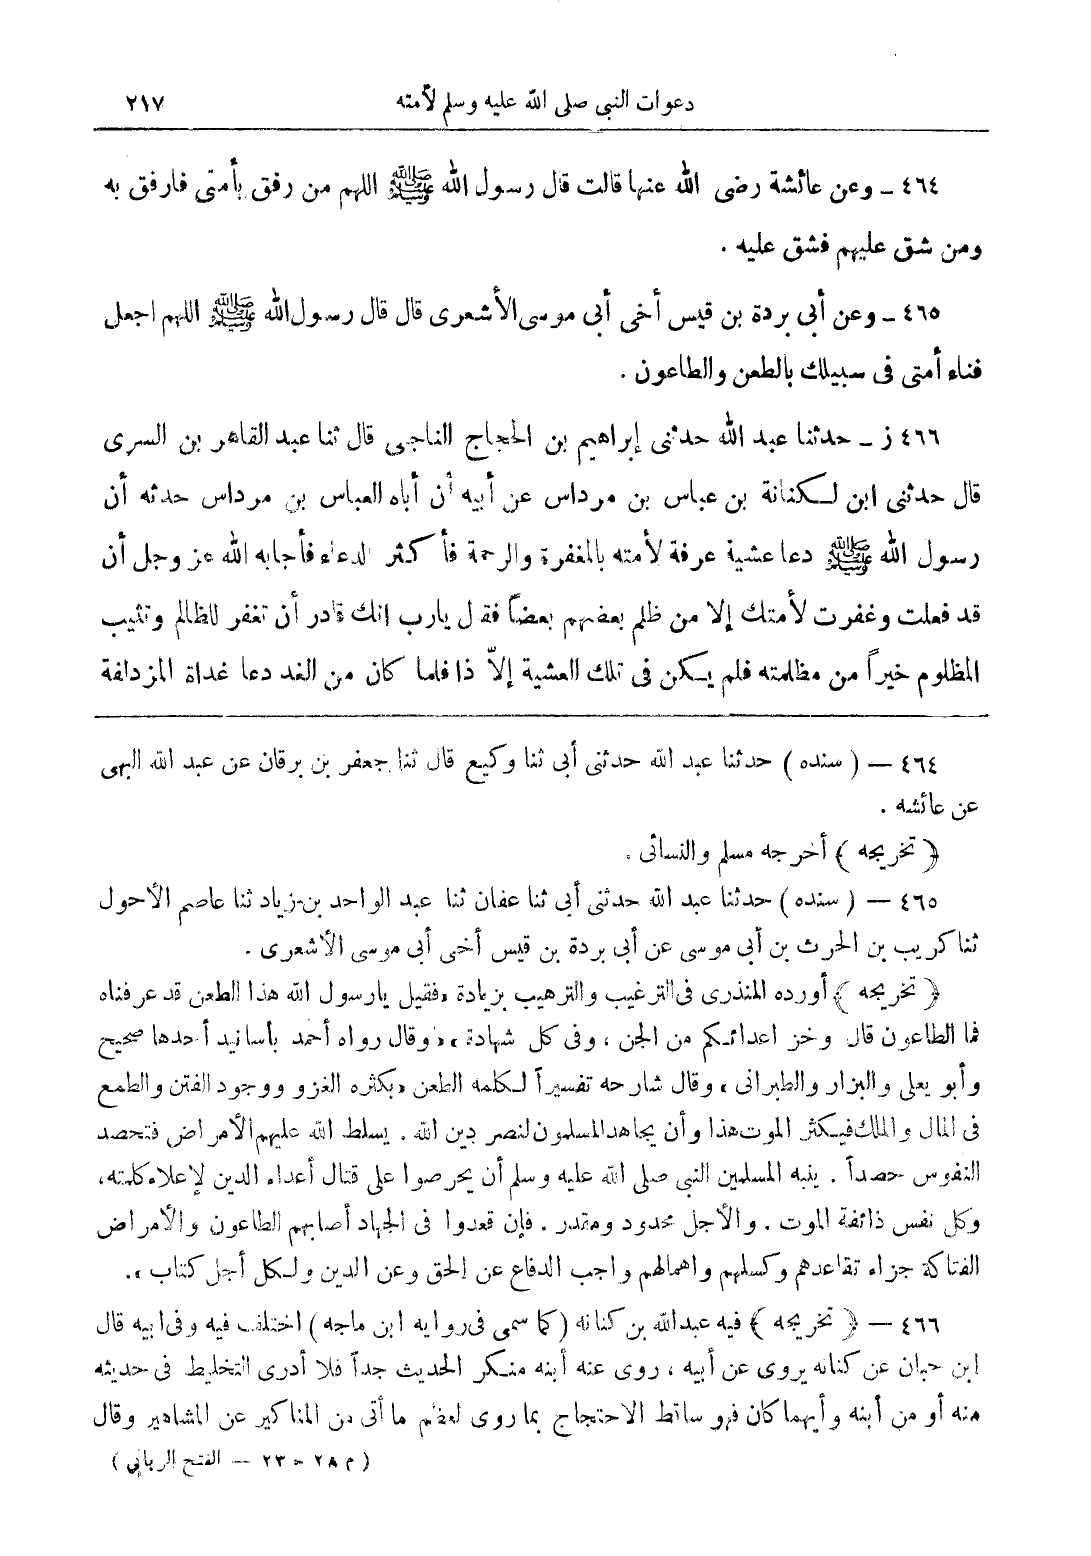 دعوات النبى صلى الله عليه وسلم لأمته ٢١٧
٤٦٤ ـ وعن عائشة رضى الله عنها قالت قال رسول الله ﷺ اللهم من رفق بأمتى فارفق به
ومن شق عليهم فشق عليه .
٤٦٥ ـ وعن أبى بردة بن قيس أخى أبى موسى الأشعرى قال قال رسول الله ﷺ اللهم اجعل
فناء أمتى فى سبيلك بالطعن والطاعون .
٤٦٦ ز ـ حدثنا عبد الله حدثنى إبراهيم بن الحجاج الناجى قال ثنا عبد القاهر بن السرى
قال حدثنى ابن لكنانة بن عباس بن مرداس عن أبيه أن أباه العباس بن مرداس حدثه أن
رسول الله ﷺ دعا عشية عرفة لأمته بالمغفرة والرحمة فأكثر الدعاء فأجابه الله عز وجل أن
قد فعلت وغفرت لأمتك إلا من ظلم بعضهم بعضاً فقال يارب انك قادر أن تغفر للظالم وتثيب
المظلوم خيراً من مظلمته فلم يكن فى تلك العشية إلاّ ذا فلما كان من الغد دعا غداة المزدلفة
٤٦٤ — ( سنده ) حدثنا عبد الله حدثنى أبى ثنا وكيع قال ثنا جعفر بن برقان عن عبد الله البهى
عن عائشه .
﴿ تخريجه ﴾ أخرجه مسلم والنسائى .
٤٦٥ — ( سنده ) حدثنا عبد الله حدثنى أبى ثنا عفان ثنا عبد الواحد بن زياد ثنا عاصم الأحول
ثنا كريب بن الحرث بن أبى موسى عن أبى بردة بن قيس أخى أبى موسى الأشعرى .
﴿ تخريجه ﴾ أورده المنذرى فى الترغيب والترهيب بزيادة «فقيل يارسول الله هذا الطعن قد عرفناه
فما الطاعون قال وخز اعدائكم من الجن ، وفى كل شهادة » وقال رواه أحمد بأسانيد أحدها صحيح
وأبو يعلى والبزار والطبرانى ، وقال شارحه تفسيراً لكلمه الطعن «بكثره الغزو ووجود الفتن والطمع
فى المال والملك فيكثر الموت هذا وأن يجاهد المسلمون لنصر دين الله . يسلط الله عليهم الأمراض فتحصد
النفوس حصداً . ينبه المسلمين النبى صلى الله عليه وسلم أن يحرصوا على قتال أعداء الدين لإعلاء كلمته،
وكل نفس ذائفة الموت . والأجل محدود ومقدر . فإن قعدوا فى الجهاد أصابهم الطاعون والأمراض
الفتاكة جزاء تقاعدهم وكسلهم واهمالهم واجب الدفاع عن الحق وعن الدين ولكل أجل كتاب » .
٤٦٦ — ﴿ تخريجه ﴾ فيه عبدالله بن كنانه (كما سمى فى روايه ابن ماجه) اختلف فيه وفى ابيه قال
ابن حبان عن كنانه يروى عن أبيه ، روى عنه أبنه منكر الحديث جداً فلا أدرى التخليط فى حديثه
منه أو من أبنه وأيهما كان فهو ساقط الاحتجاج بما روى لعظم ما أتى من المناكير عن المشاهير وقال
( م ٢٨ - ٢٣ — الفتح الربانى )